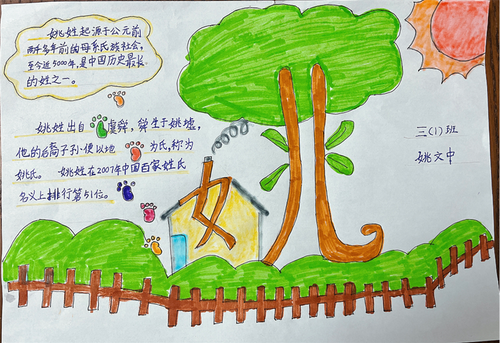 姚姓起源于公元前
两千多年前的母系氏族社会,
至今近5000年,是中国历史最长
的姓之一。
姚姓出自虞舜,舜生于姚墟,
他的后裔子孙便以地为氏,称为
姚氏。姚姓在2007年中国百家姓氏
名义上排行第51位。
女兆
三(1)班
姚文中